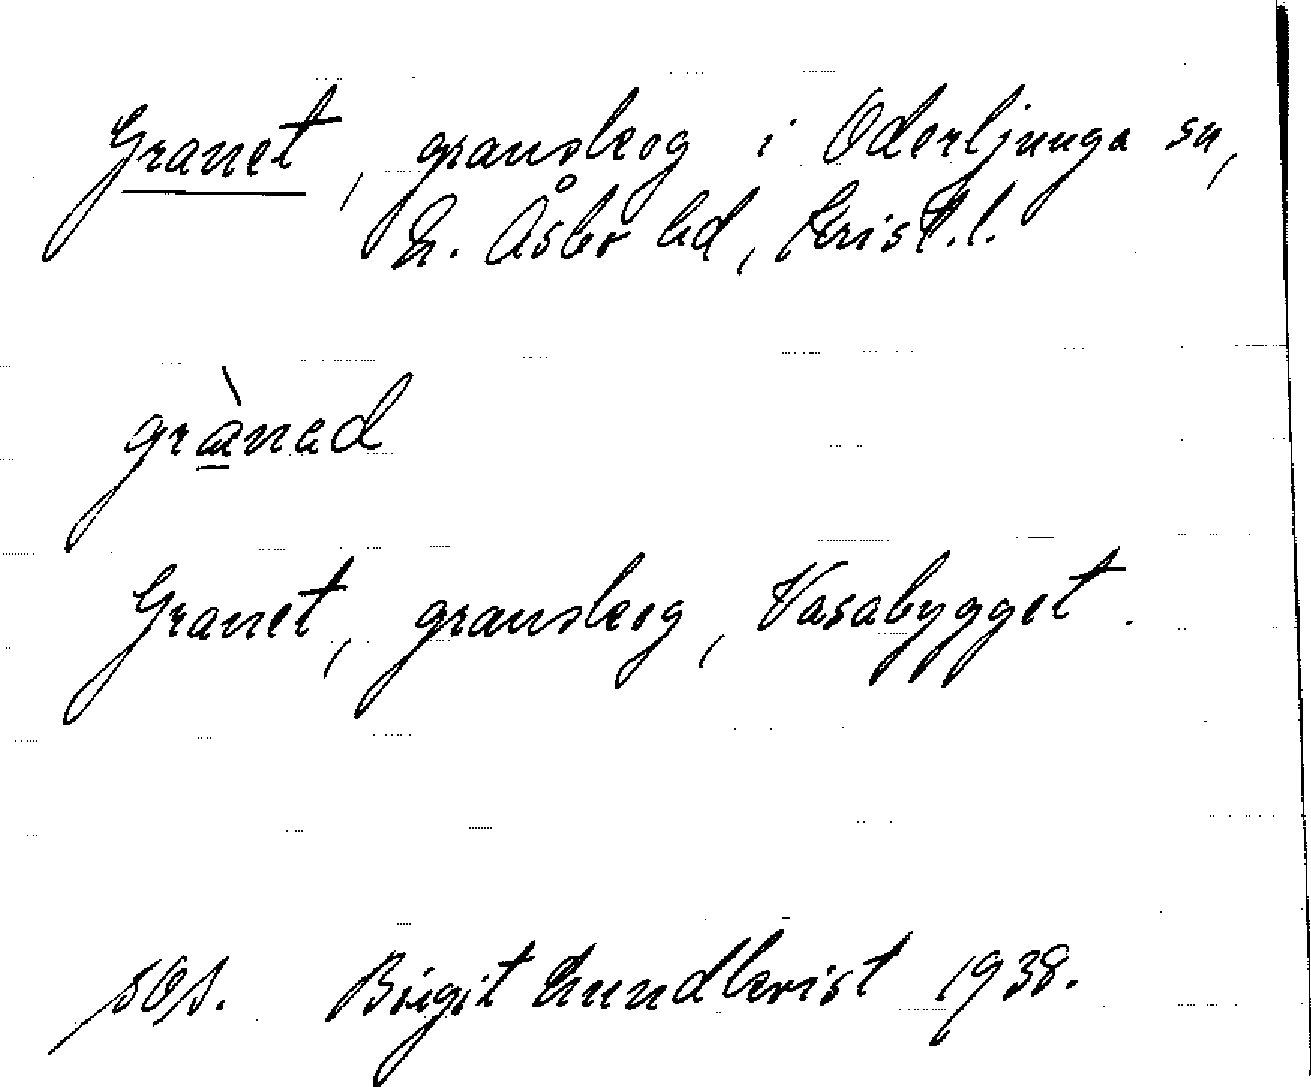 Granet, granskog i Oderljunga sn,
N. Åsbo hd, Krist.l.
grànad
Granet, granskog, Vasabygget.
Birgit Lundkvist 1938.